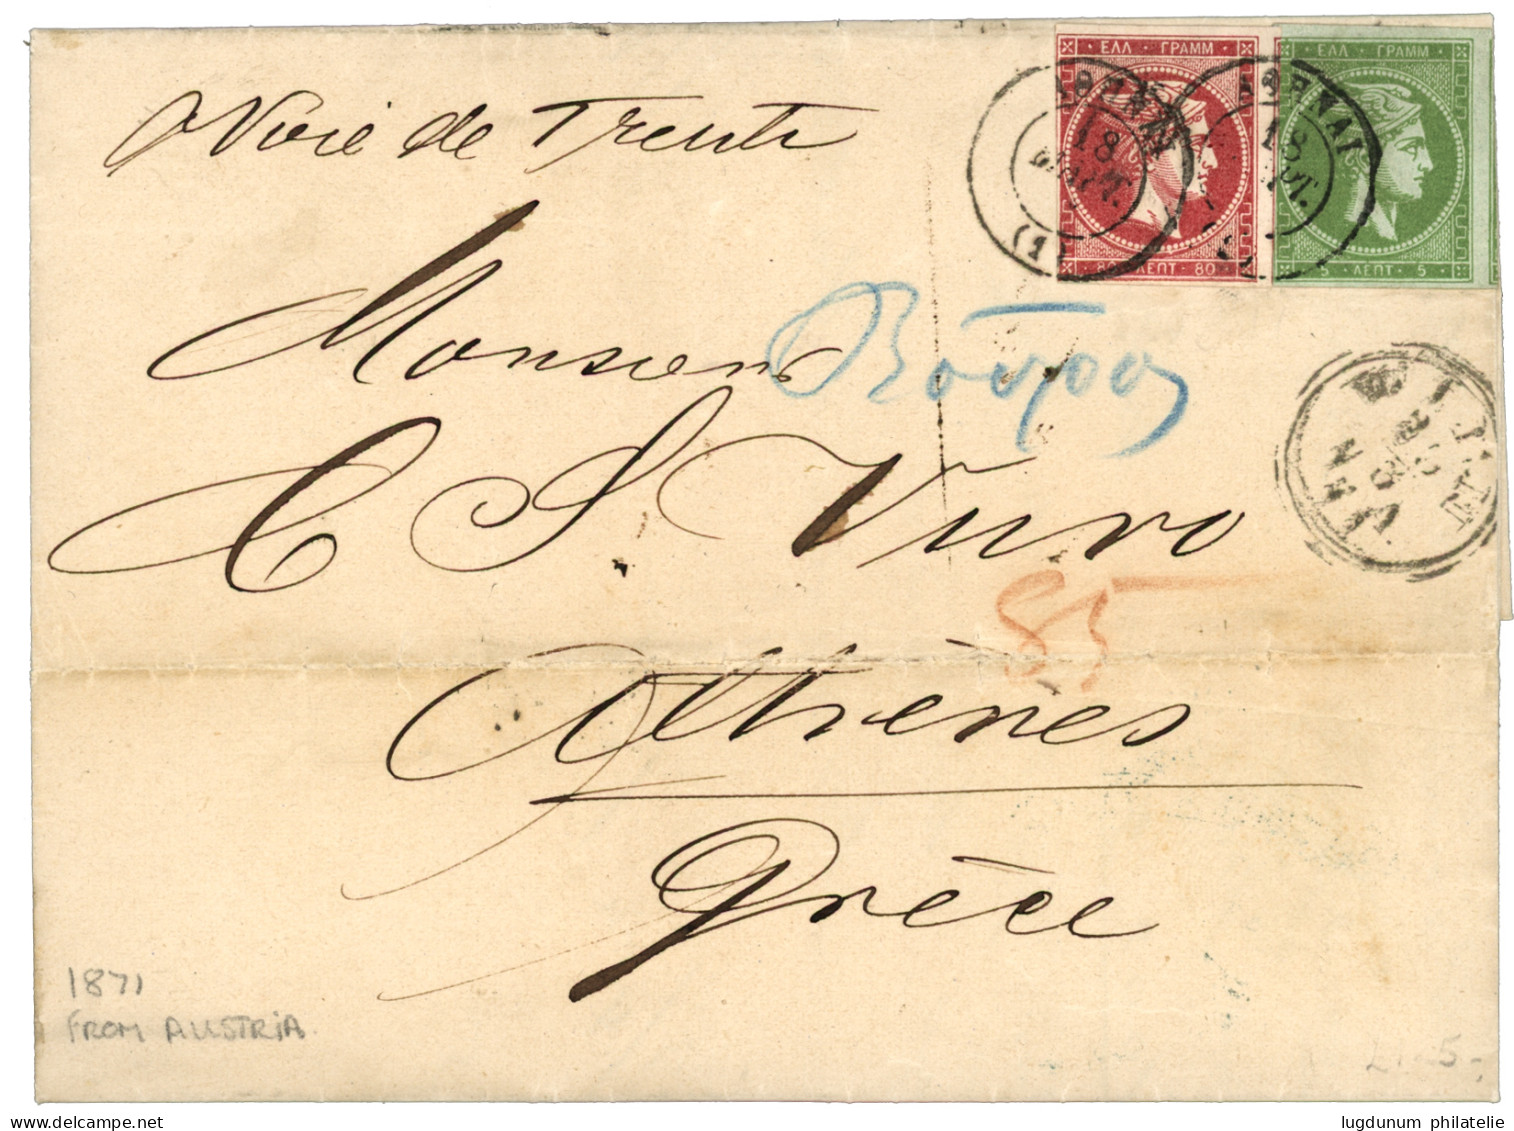 Voie de Trente
ΕΛΛ ΓΡΑΜΜ
ΕΛΛ ΓΡΑΜΜ
ΑΘΗΝΑΙ
18
(1)
ΑΘΗΝΑΙ
18
80 ΛΕΠΤ 80
5 ΛΕΠΤ 5
Monsieur
C S Vuro
WIEN
WIEN
85
Athènes
Grèce
1871
FROM AUSTRIA
lugdunum philatelie